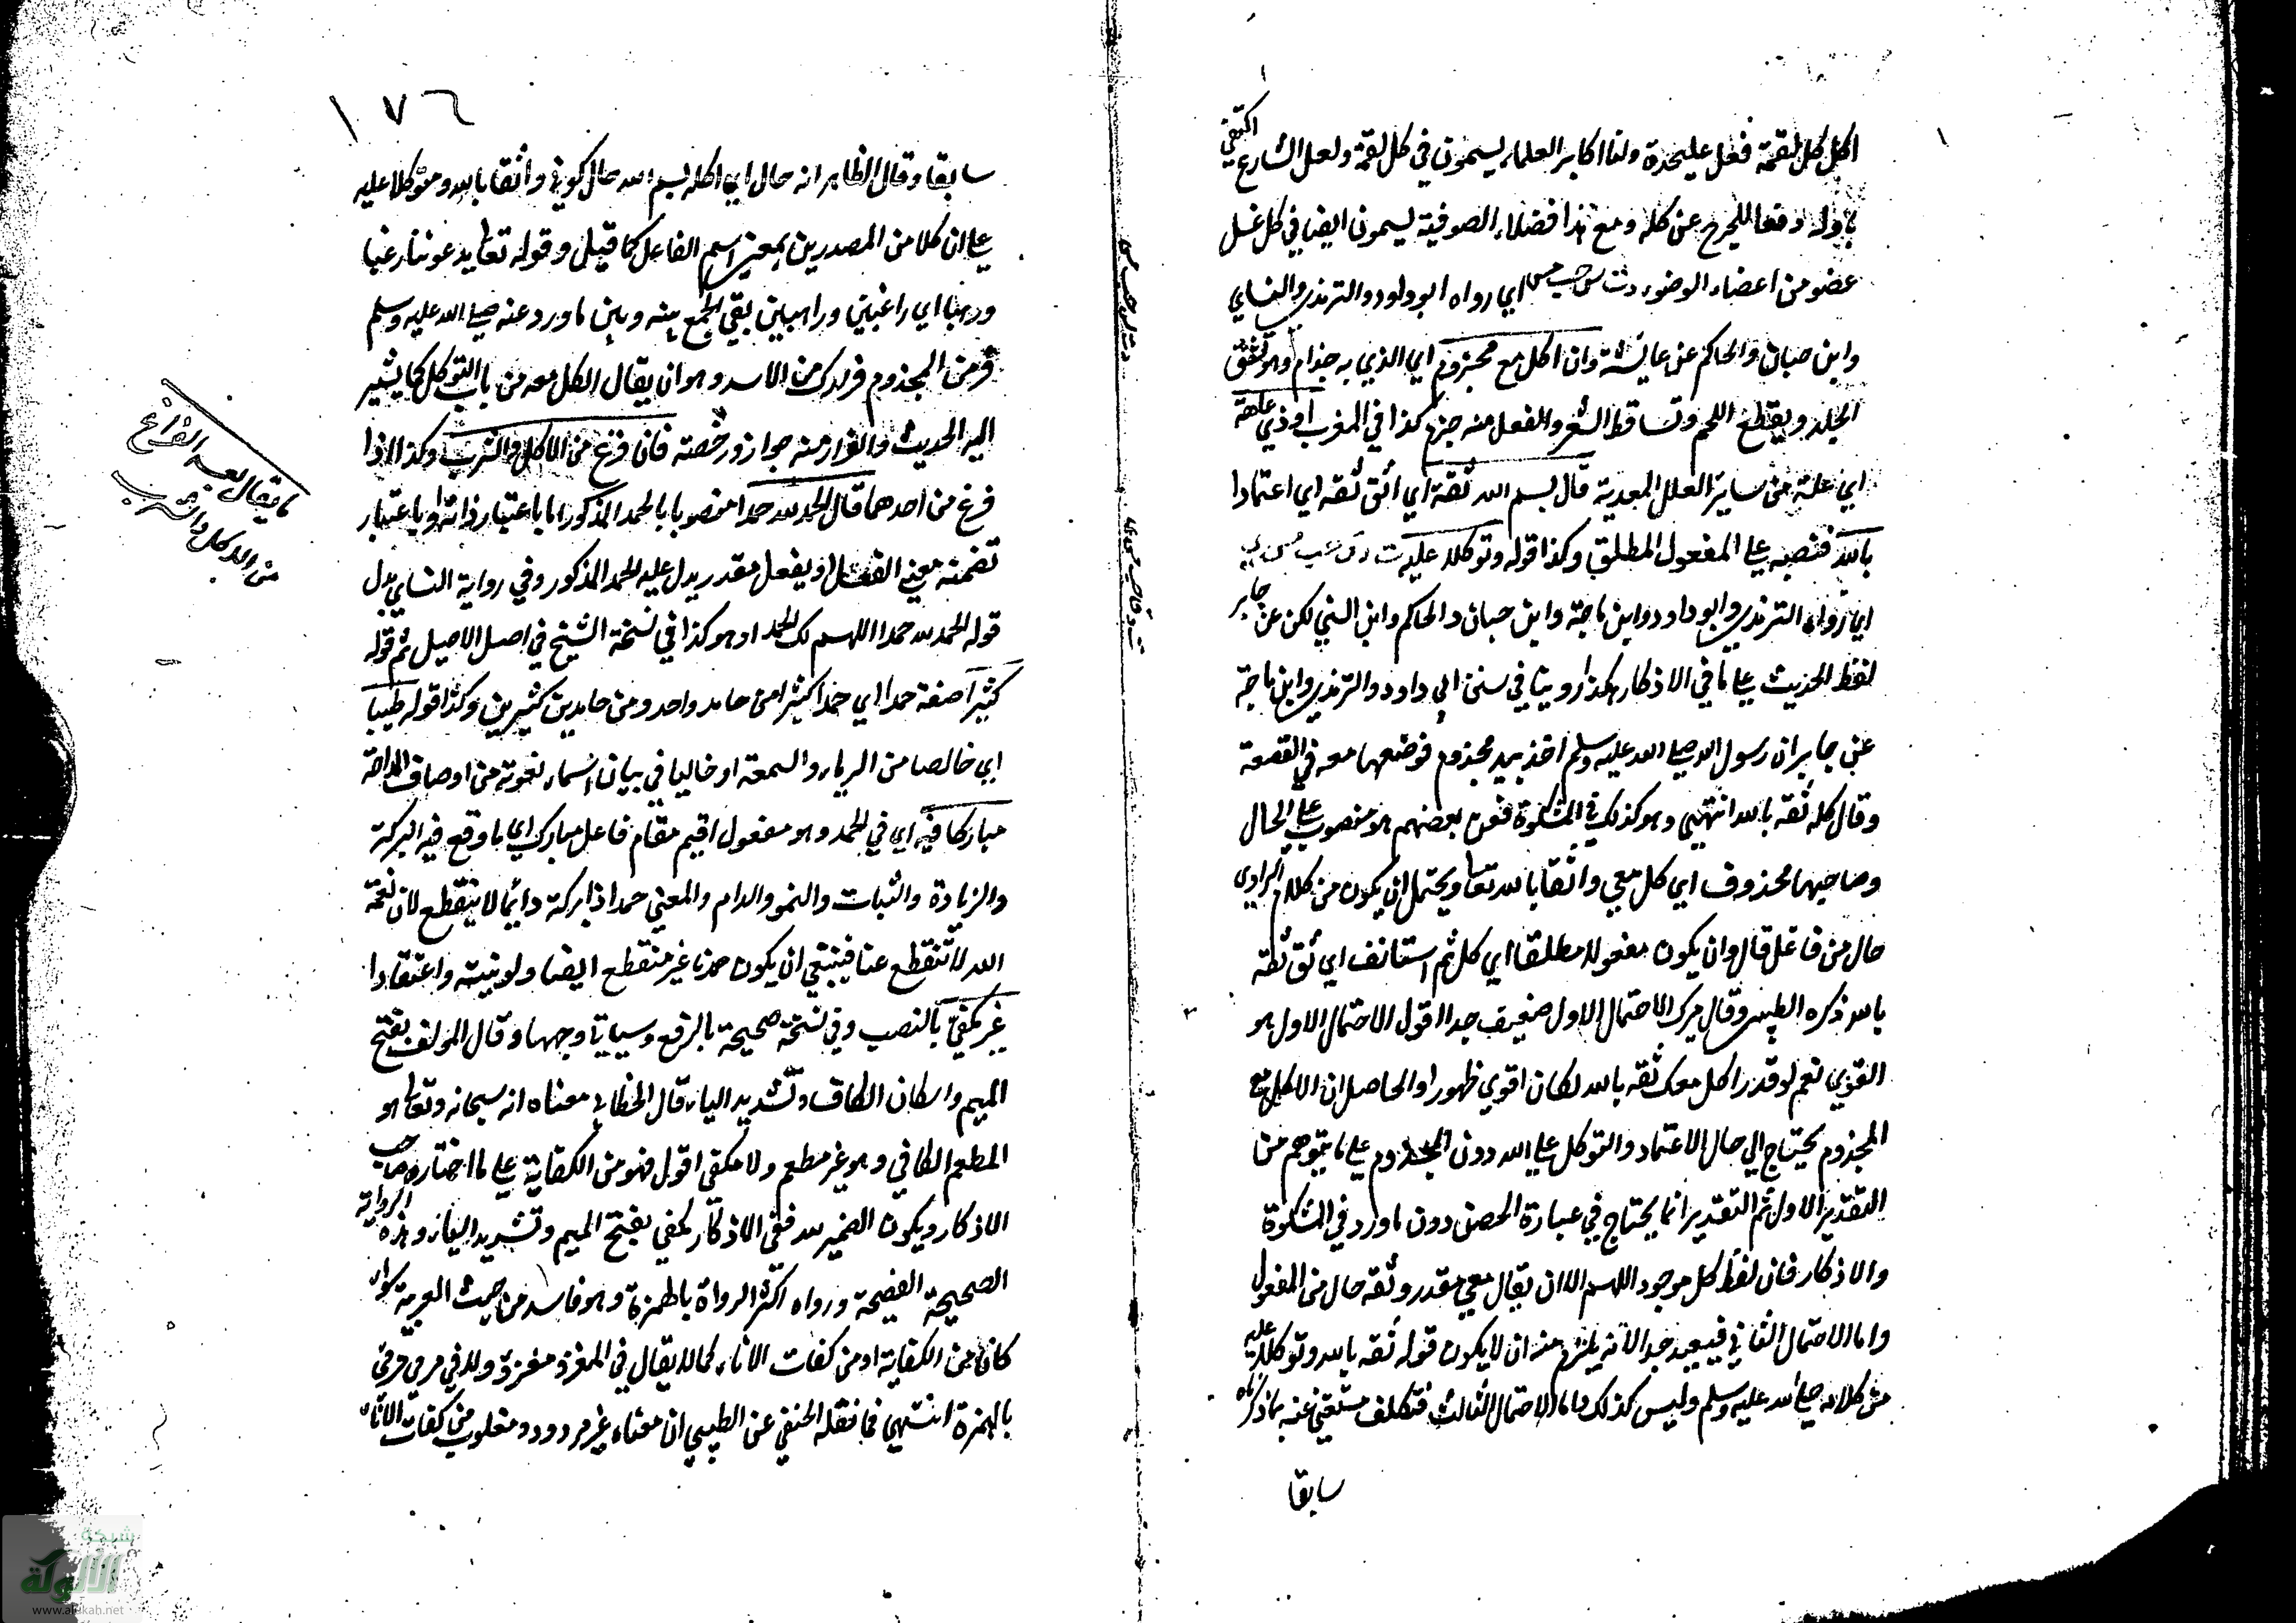 اكل كل لقمة فعل عليحدة ولذا اكابر العلماء يسمون في كل لقمة ولعل الشارع اكتفي
باوله دفعا للحرج عن كله ومع هذا فضلاء الصوفية يسمون ايضا في كل غسل
عضو من اعضاء الوضوء دت س حب مس اي رواه ابو داود والترمذي والنساي
وابن حبان والحاكم عن عايشة وان اكل مع مجذوم اي الذي به جذام وهو تشقق
الجلد ويقطع اللحم وتساقط الشعر والفعل منه جزم كذا في المغرب او ذي عاهة
اي علة من ساير العلل المعدية قال بسم الله ثقة اي اثق ثقة اي اعتمادا
بالله فنصبه علي المفعول المطلق وكذا قوله وتوكلا عليه ت د ق حب مس ي
اي رواه الترمذي وابو داود وابن ماجة وابن حبان والحاكم وابن السني لكن عن جابر
لفظ الحديث علي ما في الاذكار هكذا روينا في سنن ابي داود والترمذي وابن ماجة
عن جابر ان رسول الله صلي الله عليه وسلم اخذ بيد مجذوم فوضعها معه في القصعة
وقال كله ثقة بالله انتهي وهو كذلك في المشكوة فعن بعضهم هو منصوب علي الحال
وصاحبها محذوف اي كل معي واثقا بالله تعا ويحتمل ان يكون من كلام الراوي
حال من فاعل قال وان يكون مفعولا مطلقا اي كل ثم استانف اي ثق ثقة
بالله ذكره الطيبي وقال ميرك الاحتمال الاول ضعيف جدا اقول الاحتمال الاول هو
القوي نعم لو قدر اكل معك ثقة بالله لكان اقوي ظهورا والحاصل ان الاكل مع
المجذوم يحتاج الي حال الاعتماد والتوكل علي الله دون المجذوم علي ما يتوهم من
التقدير الاول ثم التقدير انما يحتاج في عبارة الحصن دون ما ورد في المشكوة
والاذكار فان لفظ كل موجود اللهم الا ان يقال معي مقدر وثقة حال من المفعول
واما الاحتمال الثاني فبعيد جدا لانه يلزم منه ان لا يكون قوله ثقة بالله وتوكلا عليه
من كلامه صلي الله عليه وسلم وليس كذلك واما الاحتمال الثالث فتكلف مستغني عنه بما ذكرناه
سابقا
١٧٦
سابقا وقال الظاهر انه حال اي اكله بسم الله حال كوني واثقا بالله ومتوكلا عليه
علي ان كلا من المصدرين بمعني اسم الفاعل كما قيل في قوله تعا يدعوننا رغبا
ورهبا اي راغبين وراهبين بقي الجمع بينه وبين ما ورد عنه صلي الله عليه وسلم
فر من المجذوم فرارك من الاسد وهو ان يقال الاكل معه من باب التوكل كما يشير
اليه الحديث والفرار منه جواز ورخصة فان فرغ من الاكل والشرب وكذا اذا
فرغ من احدهما قال الحمد لله حمدا منصوبا بالحمد المذكور اما باعتبار ذاته او باعتبار
تضمنه معني الفعل او بفعل مقدر يدل عليه الحمد المذكور وفي رواية النساي بدل
قوله الحمد لله حمدا اللهم لك الحمد او هو كذا في نسخة الشيخ في اصل الاصيل ثم قوله
كثيرا صفة حمدا اي حمدا كثيرا من حامد واحد ومن حامدين كثيرين وكذا قوله طيبا
اي خالصا من الرياء والسمعة او خاليا في بيان اسماء نعوته من اوصاف
مباركا فيه اي في الحمد وهو مفعول اقيم مقام فاعل مبارك اي ما وقع فيه البركة
والزيادة والثبات والنمو والدوام والمعني حمدا ذا بركة دائما لا ينقطع لان نعمة
الله لا تنقطع عنا فينبغي ان يكون حمدنا غير منقطع ايضا ولو نية واعتقادا
غير مكفي بالنصب وفي نسخة صحيحة بالرفع وسياتي وجهها وقال المؤلف بفتح
الميم واسكان الكاف وتشديد الياء قال الخطابي معناه انه سبحانه وتعالي هو
المطعم الكافي وهو غير مطعم ولا مكفي اقول فهو من الكفاية علي ما اختاره صاحب
الاذكار ويكون الضمير لله ففي الاذكار مكفي بفتح الميم وتشديد الياء وهذه الرواية
الصحيحة الفصيحة ورواه اكثر الرواة بالهمزة وهو فاسد من حيث العربية سواء
كان من الكفاية او من كفات الاناء كما لا يقال في المغزو مغزوء ولا في مرمي مرمئ
بالهمزة انتهي فما نقله الحنفي عن الطيبي ان معناه غير مردود ومقلوب من كفات الاناء
ما يقال بعد الفراغ
من الاكل والشرب
شبكة
الألوكة
www.alukah.net